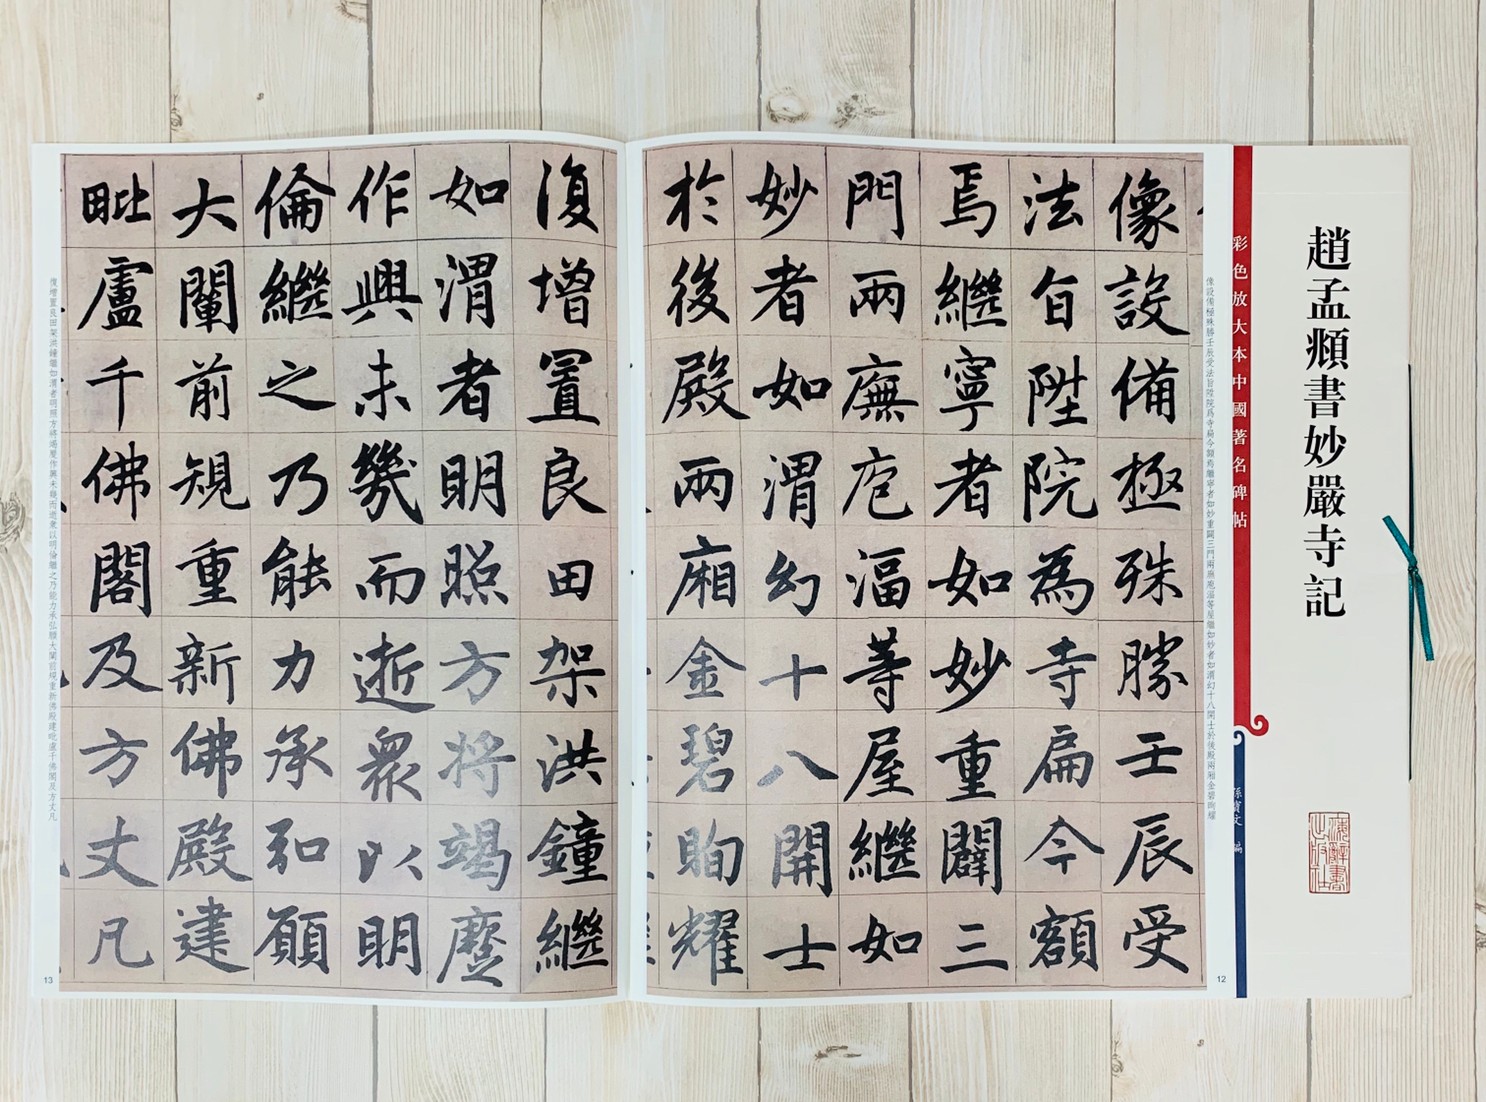 趙孟頫書妙嚴寺記
彩色放大本中國著名碑帖
孫寶文 編
像設備極殊勝壬辰受法旨陞院爲寺扁今額焉繼寧者如妙重闢三門兩廡庖湢等屋繼如妙者如渭幻十八開士於後殿兩廂金碧眴耀
像設備極殊勝壬辰受
法旨陞院為寺扁今額
焉繼寧者如妙重闢三
門兩廡庖湢等屋繼如
妙者如渭幻十八開士
於後殿兩廂金碧眴耀
12
復增置良田架洪鐘繼
如渭者明照方將竭
作興未幾而逝眾以明
倫繼之乃能力承弘願
大闡前規重新佛殿建
毗盧千佛閣及方丈凡
復增置良田架洪鐘繼如渭者明照方將竭作興未幾而逝衆以明倫繼之乃能力承弘願大闡前規重新佛殿建毗盧千佛閣及方丈凡
13